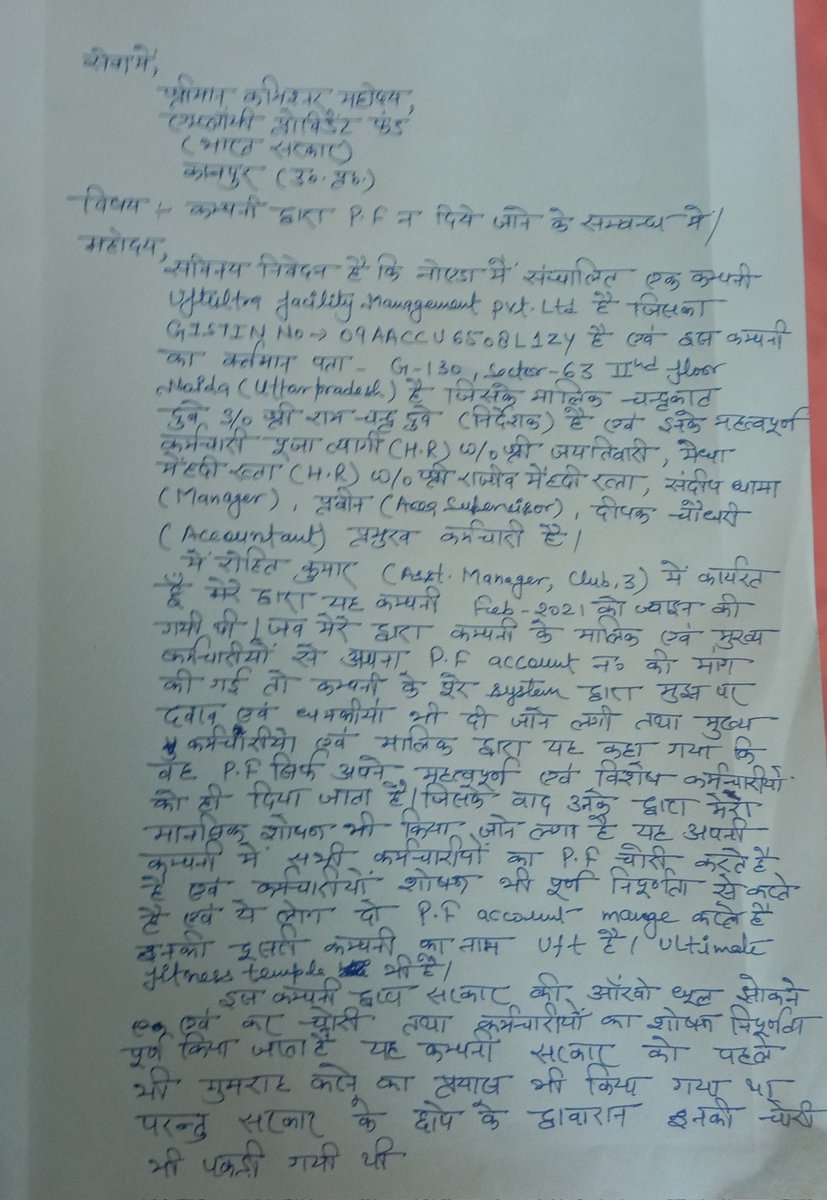 सेवा में,
श्रीमान कमिश्नर महोदय,
एम्प्लोयी प्रोविडेंट फंड
(भारत सरकार)
कानपुर (उ०.प्र०.)
विषय :- कम्पनी द्वारा P.F न दिये जाने के सम्बन्ध में।
महोदय,
सविनय निवेदन है कि नोएडा में संचालित एक कम्पनी
Uftultra facility Management Pvt. Ltd है जिसका
GISTIN No → 09AACCU6508L1ZY है एवं इस कम्पनी
का वर्तमान पता - G-130, Sector-63 IInd floor
Noida (Uttar pradesh) है जिसके मालिक चन्द्रकांत
दुबे S/o श्री राम चन्द्र दुबे (निर्देशक) है एवं इनके महत्वपूर्ण
कर्मचारी पूजा त्यागी (H.R) W/o श्री जय तिवारी, मेधा
मेंहदी रत्ता (H.R) W/o श्री राजीव मेंहदी रत्ता, संदीप धामा
(Manager), प्रवीन (Area Supervisor), दीपक चौधरी
(Accountant) प्रमुख कर्मचारी है।
मैं रोहित कुमार (Asst. Manager, Club, 3) में कार्यरत
हूँ मेरे द्वारा यह कम्पनी Feb-2021 को ज्वाइन की
गयी थी। जब मेरे द्वारा कम्पनी के मालिक एवं मुख्य
कर्मचारीयों से अपना P.F account न० की मांग
की गई तो कम्पनी के पूरे system द्वारा मुझ पर
दवाब एवं धमकीयां भी दी जाने लगी तथा मुख्य
कर्मचारीयो एवं मालिक द्वारा यह कहा गया कि
वह P.F सिर्फ अपने महत्वपूर्ण एवं विशेष कर्मचारीयों
को ही दिया जाता है। जिसके बाद उनके द्वारा मेरा
मानसिक शोषण भी किया जाने लगा है यह अपनी
कम्पनी में सभी कर्मचारीयों का P.F चोरी करते है
है एवं कर्मचारीयों शोषण भी पूर्ण निपूर्णता से करते
है एवं ये लोग दो P.F account mange करते है
इनकी दूसरी कम्पनी का नाम Uft है। Ultimate
fitness temple भी है।
इस कम्पनी द्वारा सरकार की आँखो धूल झोकने
एवं कर चोरी तथा कर्मचारीयों का शोषण निपूर्णता
पूर्ण किया जाता है यह कम्पनी सरकार को पहले
भी गुमराह करने का प्रयास भी किया गया था
परन्तु सरकार के छापे के द्वावारान इनकी चोरी
भी पकड़ी गयी थी